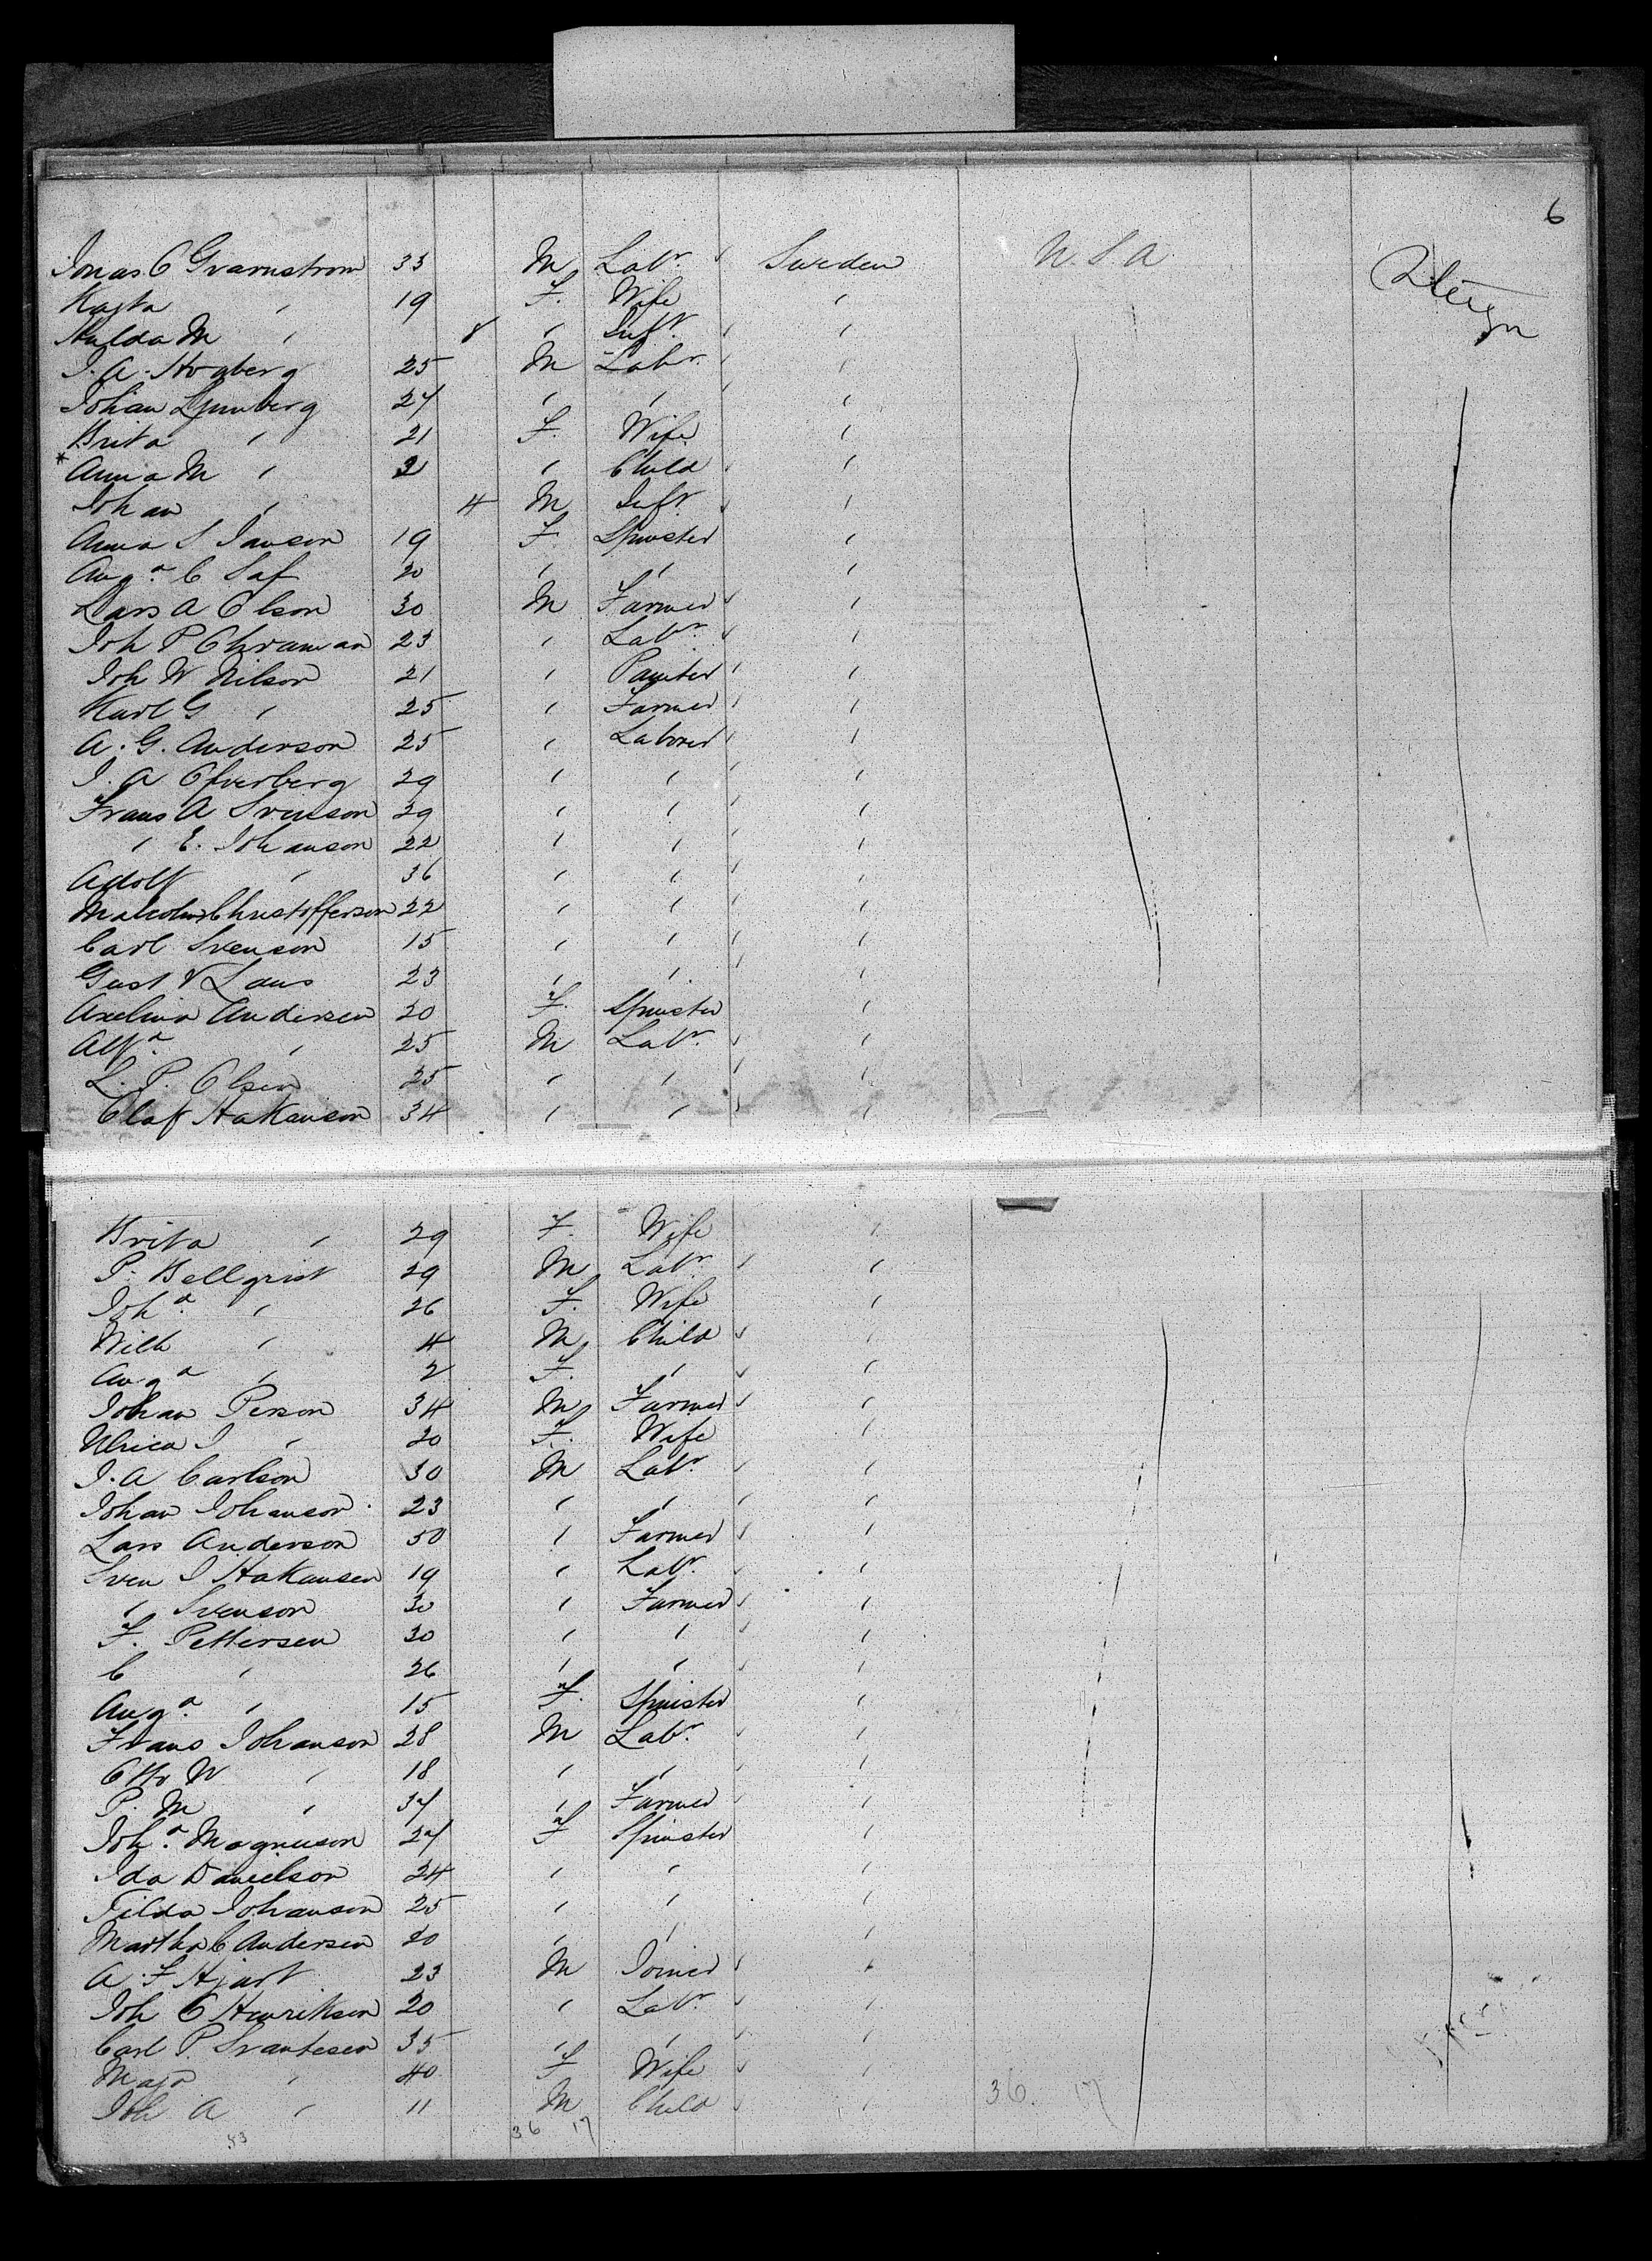 6
Jonas O Gvarnstrom 33 M Labr. Sweden U.S.A. Steerge
Kajsa " 19 F. Wife "
Hulda M " 8 " Inft. "
J. A. Hogberg 25 M Labr. "
Johan Ljunberg 27 " " "
Brita " 21 F. Wife "
* Anna M " 3 " Child "
Johan " 4 M Inft "
Anna S Janson 19 F. Spinster "
Auga. C Saf 20 " " "
Lars A Olson 30 M Farmer "
Joh P Ohraman 23 " Labr. "
Joh W Nilson 21 " Painter "
Karl G " 25 " Farmer "
A. G. Anderson 25 " Laborer "
J. A Ofverberg 29 " " "
Frans A Svenson 29 " " "
" E. Johanson 22 " " "
Adolf " 36 " " "
Malcolm Christofferson 22 " " "
Carl Svenson 15 " " "
Gust V Laus 23 " " "
Axelina Andersen 20 F. Spinster "
Alfa. " 25 M Labr. "
L. P. Olsen 25 " " "
Olaf Hakanson 34 " " "
Brita " 29 F. Wife "
P. Bellqrist 29 M Labr. "
Joha. " 26 F. Wife "
Wilh " 4 M Child "
Auga " 2 F. " "
Johan Person 34 M Farmer "
Ulrica J " 20 F. Wife "
J. A Carlson 30 M Labr. "
Johan Johanson 23 " " "
Lars Anderson 50 " Farmer "
Sven J Hakansen 19 " Labr. "
" Svenson 30 " Farmer "
F. Pettersen 30 " " "
C " 26 " " "
Auga. " 15 F. Spinster "
Frans Johanson 28 M Labr. "
Otto W " 18 " " "
P. M " 37 " Farmer "
Joha. Magnuson 27 F Spinster "
Ida Danielson 24 " " "
Tilda Johanson 25 " " "
Martha C Andersen 20 " " "
A. F Hjart 23 M Joiner "
Joh O Henriksen 20 " Labr. "
Carl P. Svantesen 35 " " "
Maja " 40 F Wife "
Joh A " 11 M Child " 36. 17
53 36 17